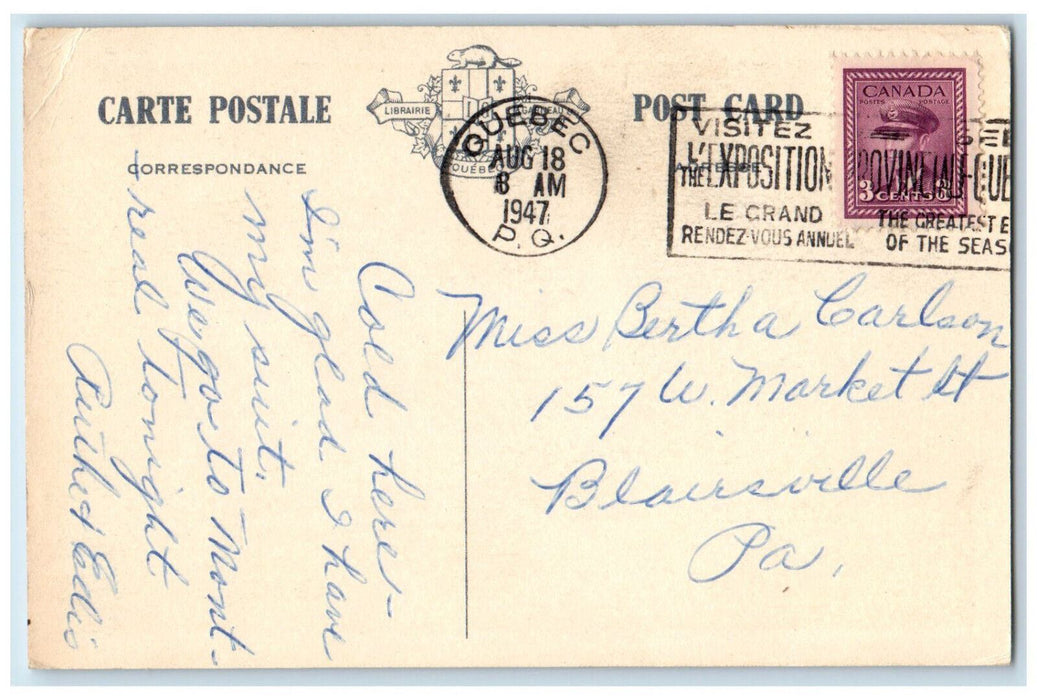 CARTE POSTALE
POST CARD
CORRESPONDANCE
LIBRAIRIE GARNEAU
QUÉBEC
QUEBEC
AUG 18
8 AM
1947
P. Q.
VISITEZ
L'EXPOSITION PROVINCIALE-QUE
THE
LE GRAND
RENDEZ-VOUS ANNUEL
THE GREATEST E
OF THE SEAS
CANADA
POSTES POSTAGE
3 CENTS 3
Cold here-
I'm glad I have
my suit.
We go to Mont-
real tonight
Ruth & Edis
Miss Bertha Carlson
157 W. Market St
Blairsville
Pa,